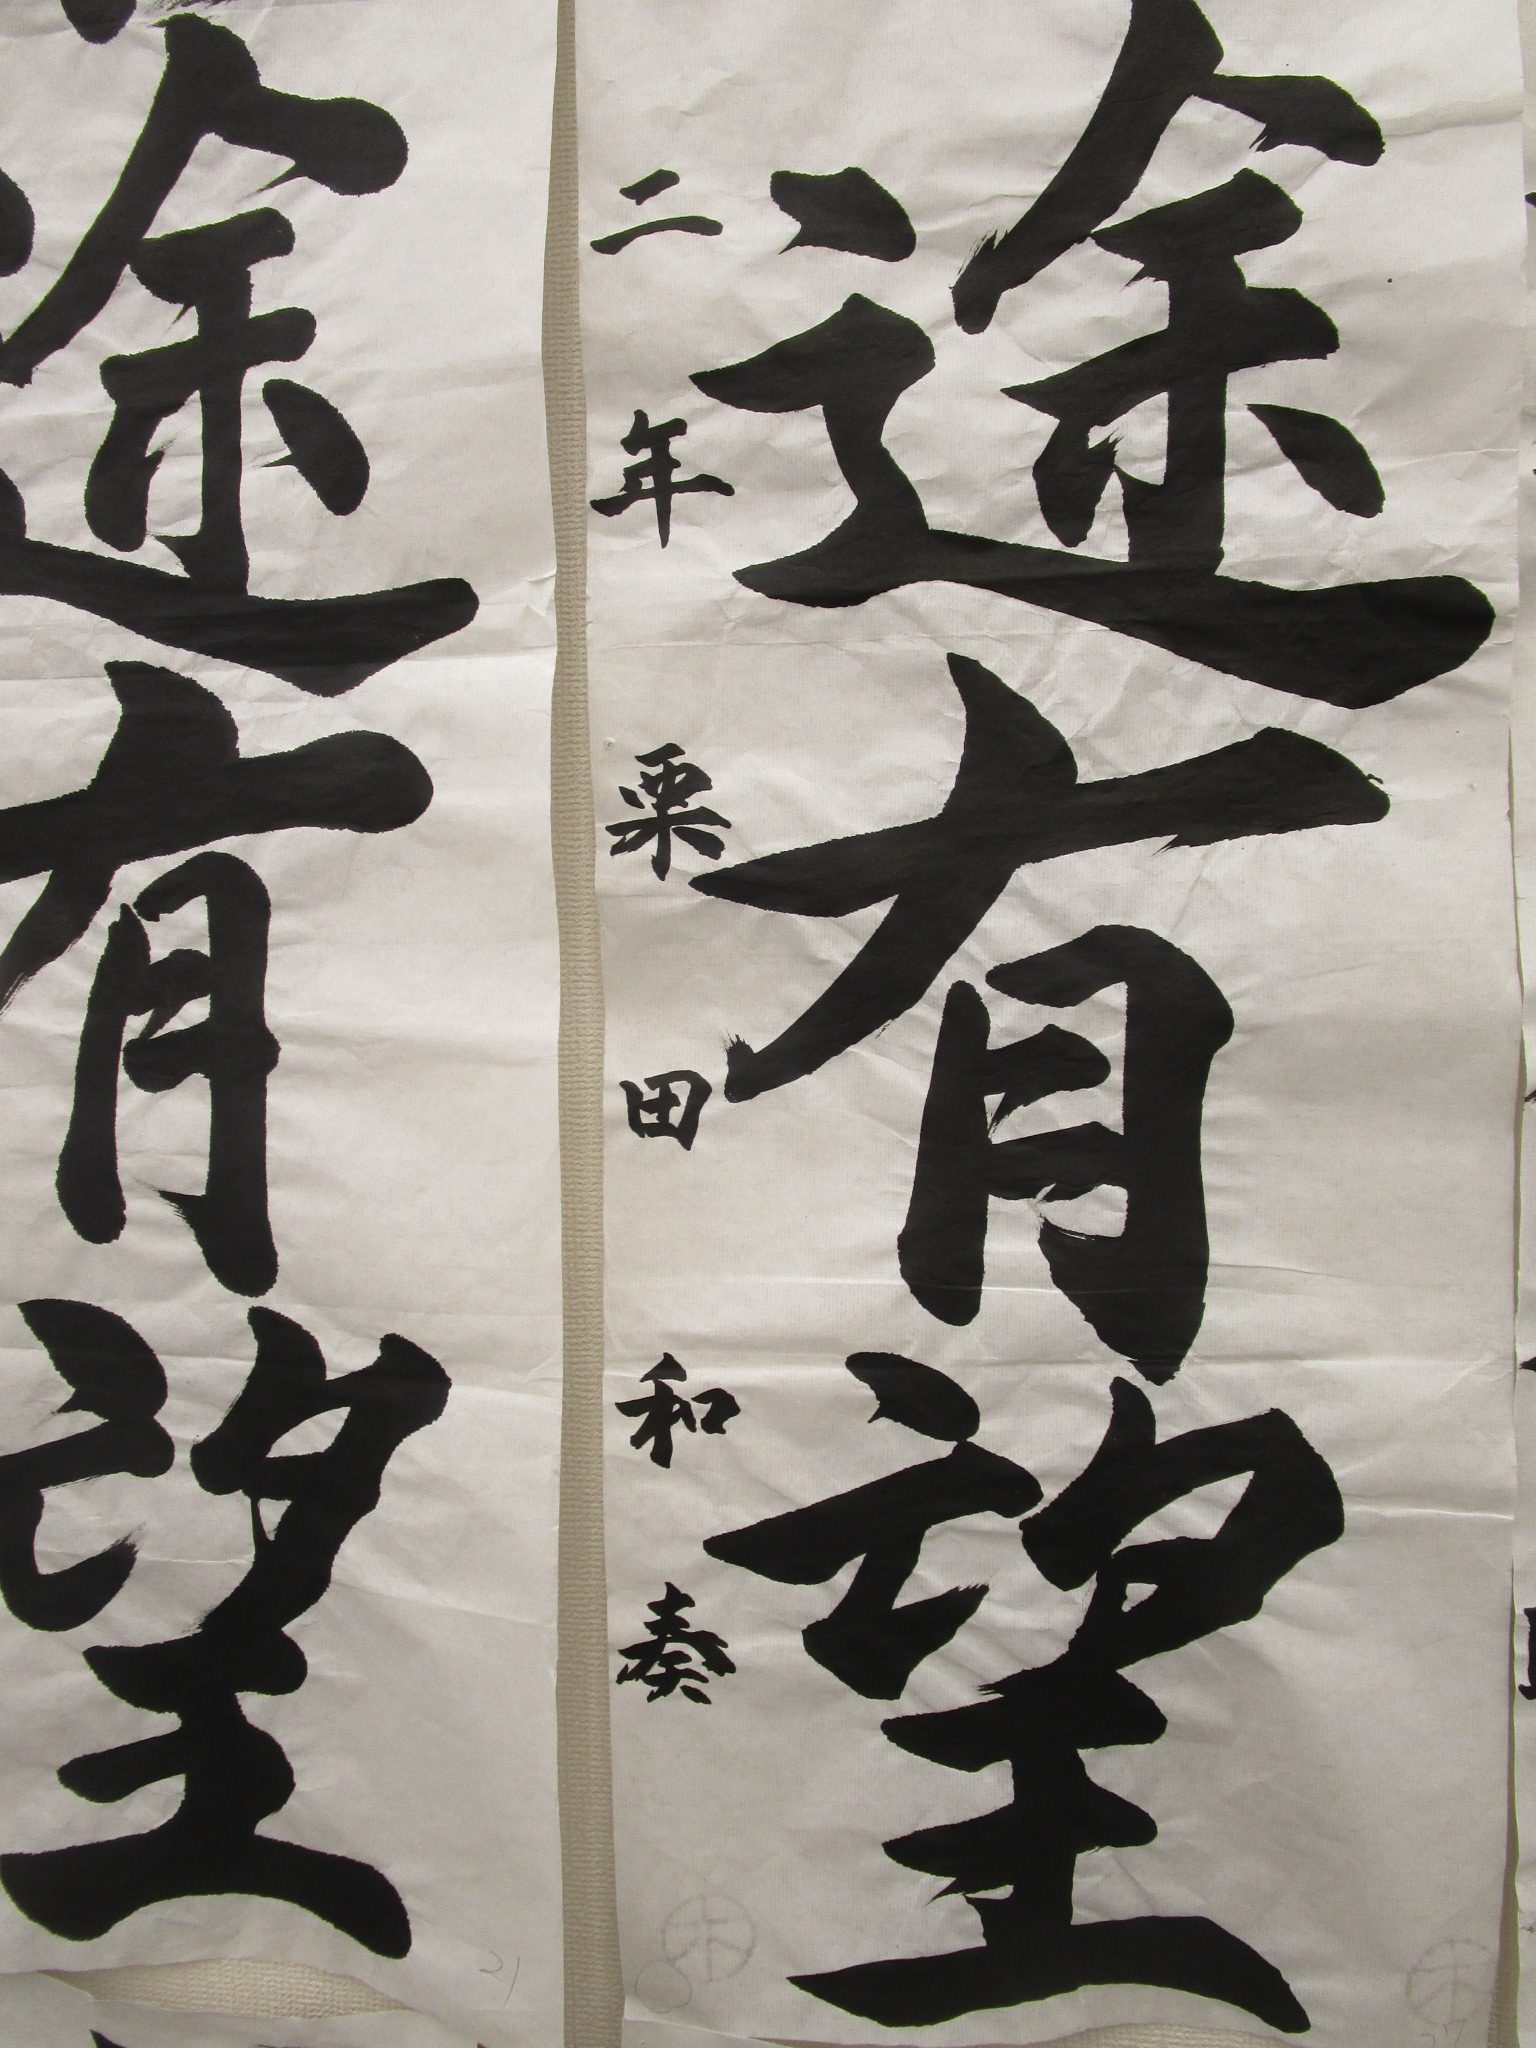 途有望
二年 栗田和奏
途有望
21
27